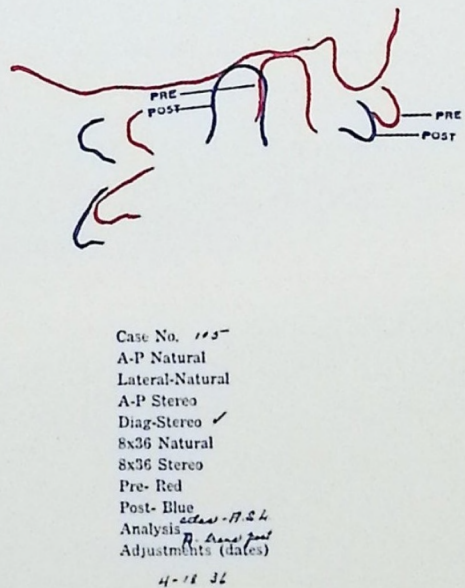 PRE
POST
PRE
POST
Case No. 105
A-P Natural
Lateral-Natural
A-P Stereo
Diag-Stereo ✓
8x36 Natural
8x36 Stereo
Pre- Red
Post- Blue
Analysis atlas - A.S.L.
R. trans post
Adjustments (dates)
4-18 36